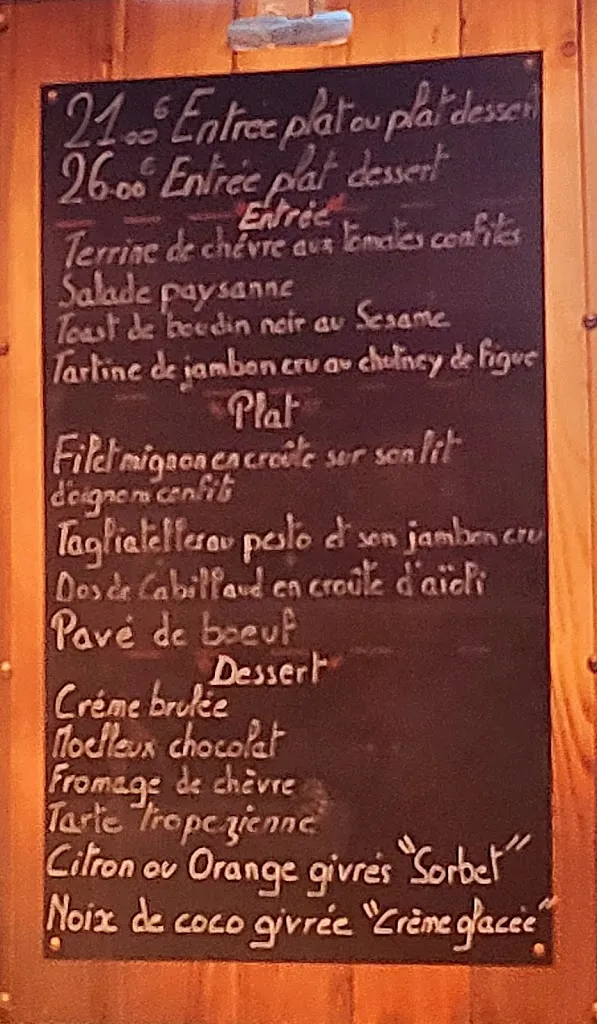 21.00€ Entrée plat ou plat dessert
26.00€ Entrée plat dessert
Entrée
Terrine de chévre aux tomates confites
Salade paysanne
Toast de boudin noir au Sesame
Tartine de jambon cru au chutney de figue
Plat
Filet mignon en croûte sur son lit
d'oignons confits
Tagliatelles au pesto et son jambon cru
Dos de Cabillaud en croûte d'aïoli
Pavé de boeuf
Dessert
Créme brulée
Moelleux chocolat
Fromage de chèvre
Tarte tropezienne
Citron ou Orange givrés "Sorbet"
Noix de coco givrée "Crème glacée"